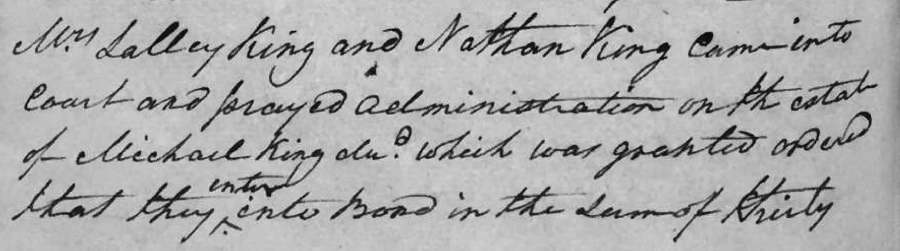 Mrs Salley King and Nathan King Came into
Court and prayed administration on th estat
of Michael King decd. which was granted ordered
that they enter into Bond in the Sum of thirty